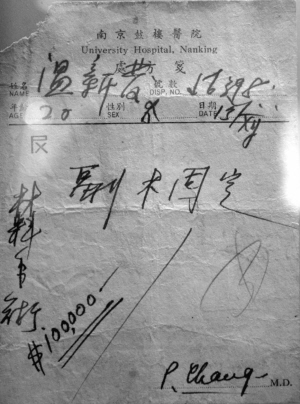 南京鼓樓醫院
University Hospital, Nanking
處方箋
姓名 NAME 溫新發 號數 DISP. NO.
年齡 AGE 20 性別 SEX 日期 DATE
副木固定
材料手術
$100,000
P. Chang M.D.